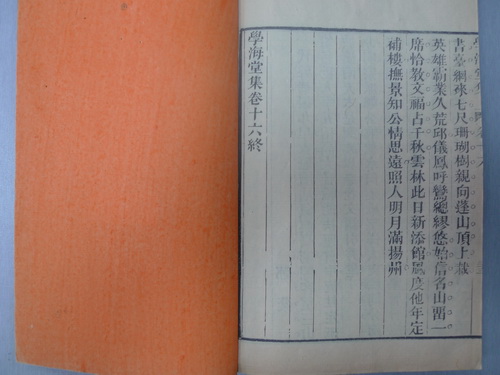 書臺網硃七尺珊瑚樹親向蓬山頂上栽
英雄霸業久荒邱儀鳳呼鸞總繆悠始信名山畱一
席恰教文福占千秋雲林此日新添館風度他年定
補樓撫景知公情思遠照人明月滿揚州
學海堂集卷十六終